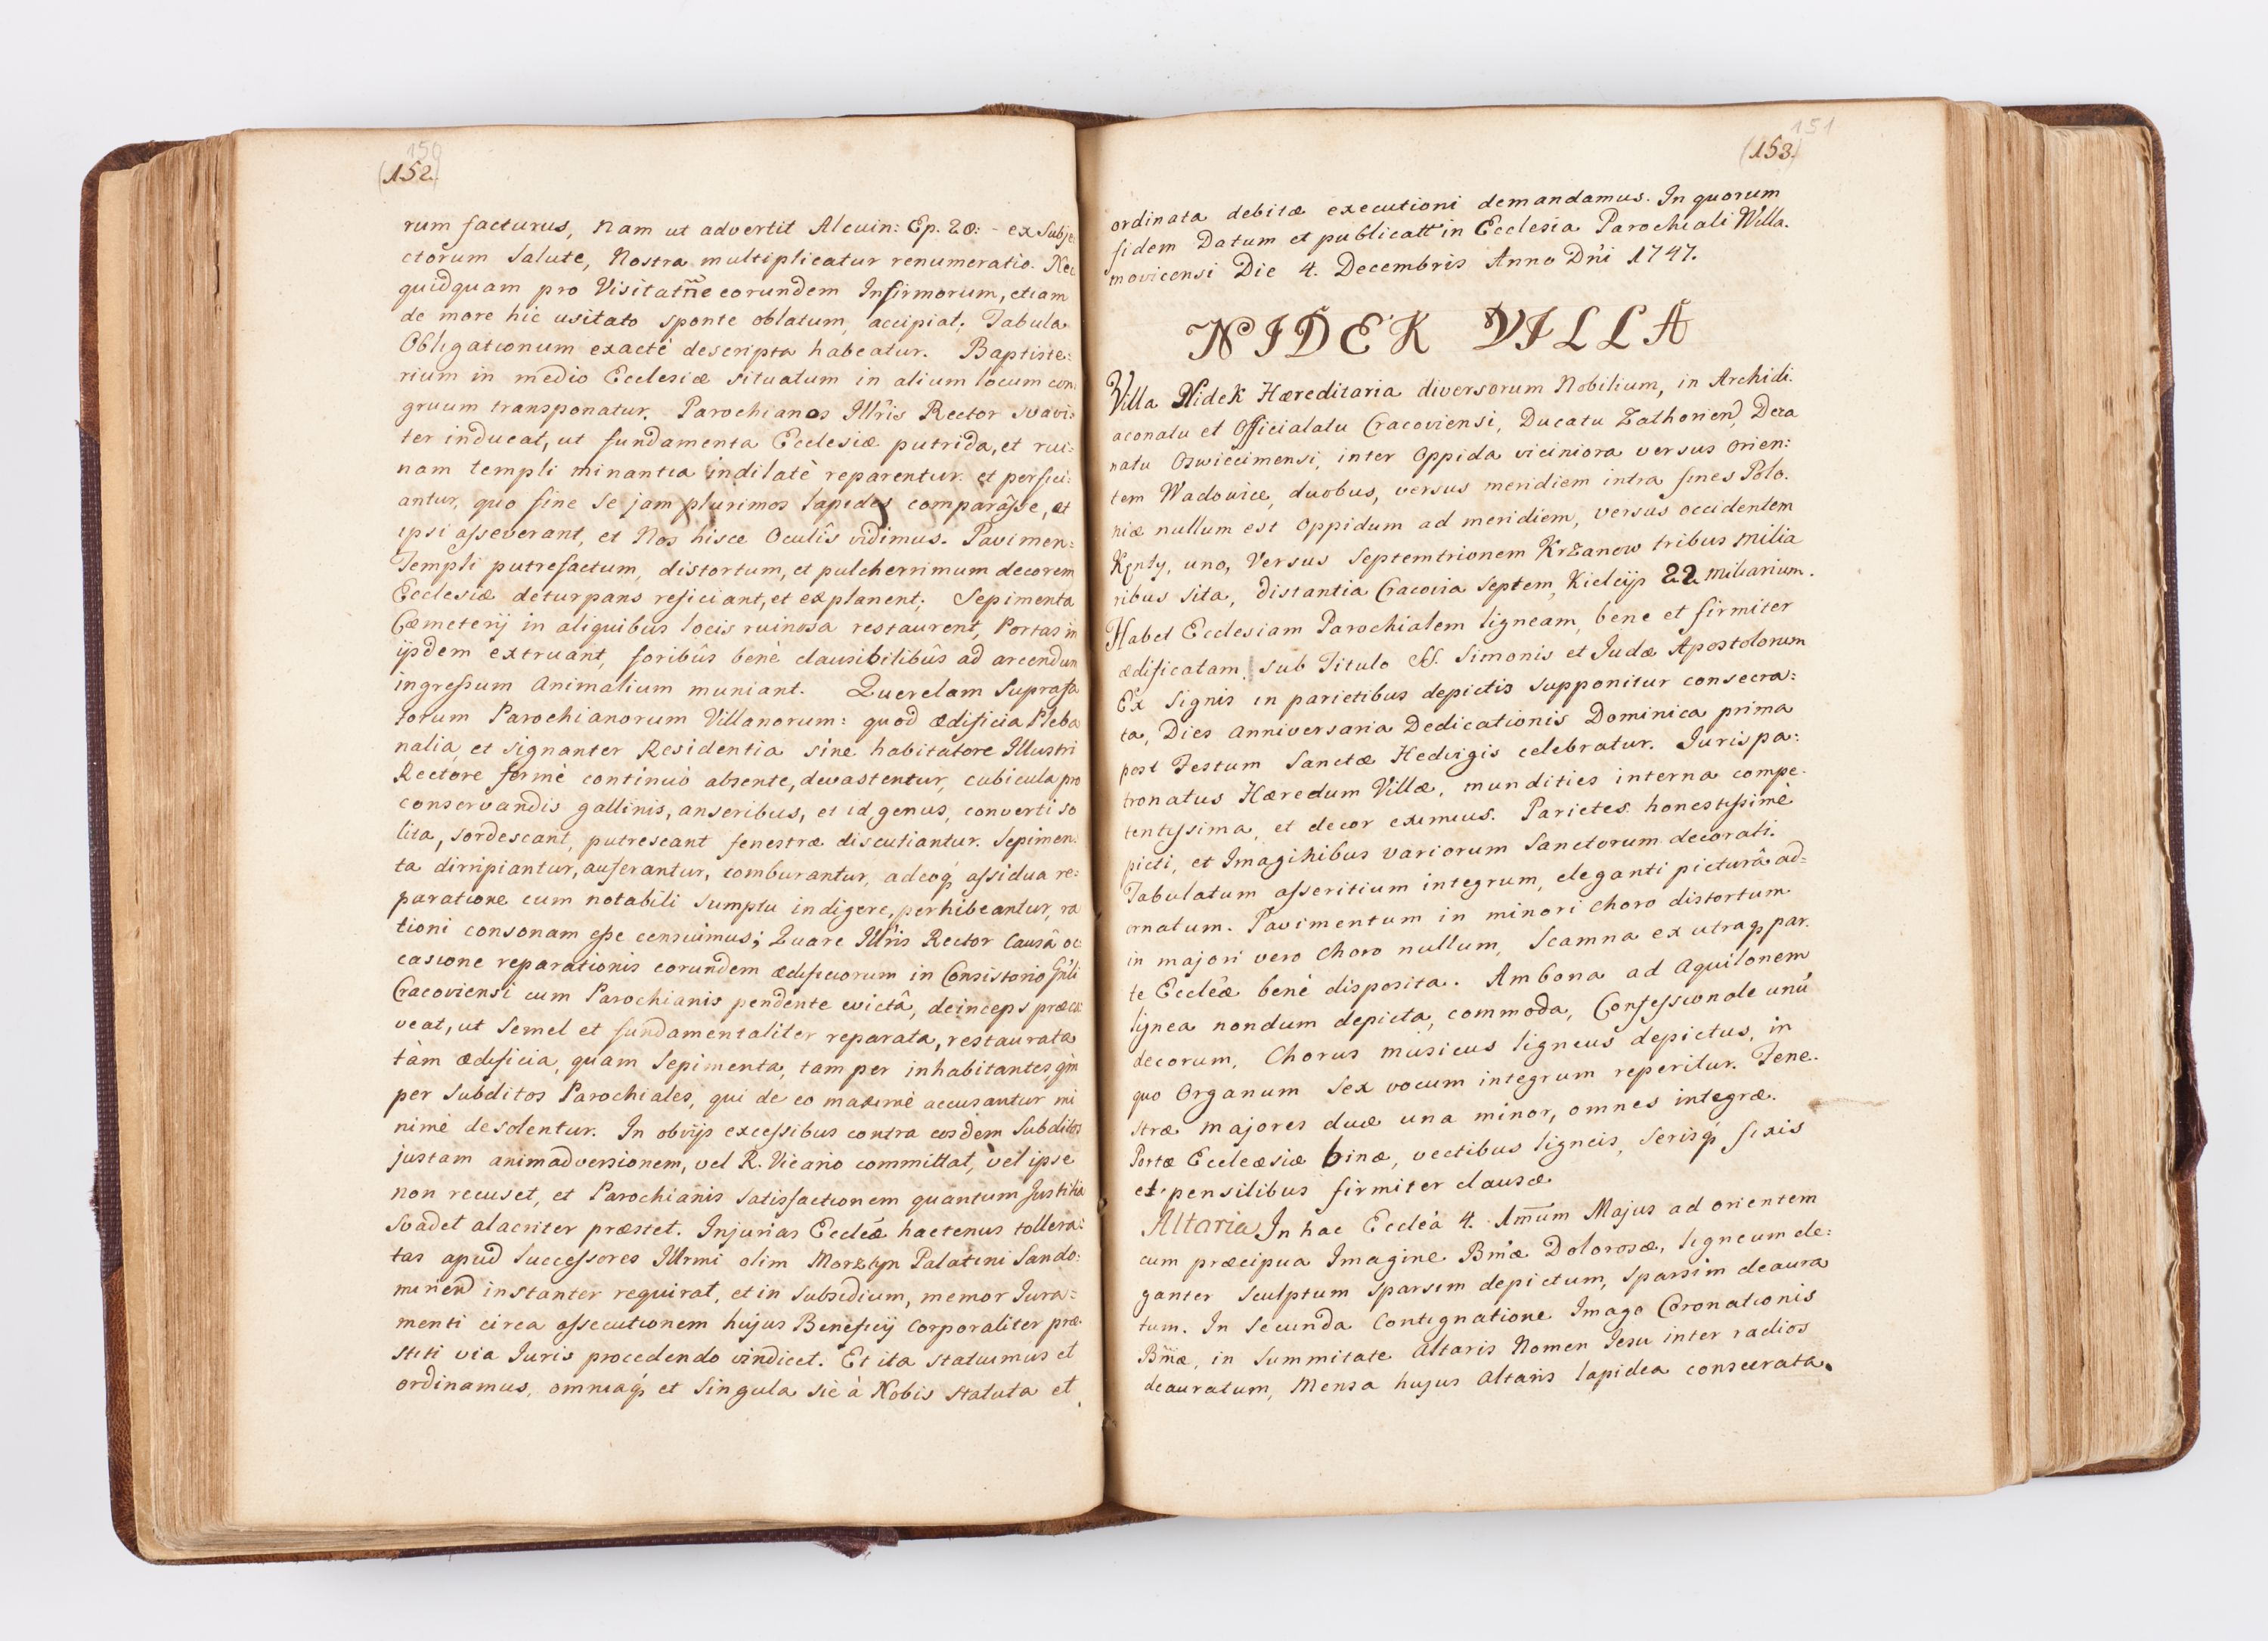 150
(152.)
rum facturus, nam ut advertit Alcuin: Ep. 20: - ex Subje
ctorum Salute, Nostra multiplicatur renumeratio. Nec
quidquam pro Visitatñe eorundem Infirmorum, etiam
de more hic usitato sponte oblatum, accipiat; Tabula
Obligationum exactè descripta habeatur. Baptiste:
rium in medio Ecclesiæ situatum in alium locum con:
gruum transponatur. Parochianos Illris Rector svavi:
ter inducat, ut fundamenta Ecclesiæ putrida, et rui:
nam templi minantia indilatè reparentur et perfici:
antur, quo fine Se jam plurimos lapides comparâsse, et
ipsi asseverant, et Nos hisce Oculîs vidimus. Pavimen:
Templi putrefactum, distortum, et pulcherrimum decorem
Ecclesiæ deturpans rejiciant, et explanent; Sepimenta
Cæmeterij in aliquibus locis ruinosa restaurent, Portas in
ijsdem extruant, foribûs benè clausibilibûs ad arcendum
ingressum Animalium muniant. Querelam Suprafa
torum Parochianorum Villanorum: quod ædificia Pleba
nalia, et signanter Residentia sine habitatore Illustri
Rectore fermè continuò absente, devastentur, cubicula pro
conservandis gallinis, anseribus, et id genus, converti so
lita, sordescant, putrescant fenestræ discutiantur. Sepimen:
ta dirripiantur, auferantur, comburantur, adeoq́ assidua re:
paratione cum notabili sumptu indigere, perhibeantur, ra
tioni consonam esse censuimus; Quare Illris Rector Causâ oc
casione reparationis eorundem ædificiorum in Consistorio Gñli
Cracoviensi cum Parochianis pendente evictâ, deinceps præca
veat, ut Semel et fundamentaliter reparata, restaurata
tàm ædificia, quam Sepimenta, tam per inhabitantes, qm̀
per Subditos Parochiales, qui de eo maximè accusantur mi
nimè desolentur. In obvijs excessibus contra eosdem Subditos
justam animadversionem, vel R. Vicario committat, vel ipse
non recuset, et Parochianis Satisfactionem quantum Justitia
Svadet alacriter præstet. Injurias Eccleæ hactenus tollera:
tas apud Successores Illrmi olim Morsztyn Palatini Sando:
mirien instanter requirat, et in Subsidium, memor Jura:
menti circa assecutionem hujus Beneficij Corporaliter præ:
stiti via Juris procedendo vindicet. Et ita statuimus et
ordinamus, omniaq́ et Singula sic à Nobis statuta et
151
(153.)
ordinata debitæ executioni demandamus. In quorum
fidem Datum et publicatt in Ecclesia Parochiali Willa.
movicensi Die 4. Decembris Anno Dñi 1747.
NIDEK VILLA
Villa Nidek Hæreditaria diversorum Nobilium, in Archidi.
aconatu et Officialatu Cracoviensi, Ducatu Zathorien, Deca
natu Oswiecimensi, inter Oppida viciniora versus Orien:
tem Wadovice, duobus, versus meridiem intra fines Polo.
niæ nullum est Oppidum ad meridiem, versus occidentem
Kęnty, uno, Versus Septemtrionem Krzanow tribus milia
ribus sita, distantia Cracovia Septem, Kielcijs 22 miliarium.
Habet Ecclesiam Parochialem ligneam, bene et firmiter
ædificatam, sub Titulo SS. Simonis et Judæ Apostolorum
Ex Signis in parietibus depictis supponitur consecra:
ta, Dies anniversaria Dedicationis Dominica prima
post Festum Sanctæ Hedvigis celebratur. Juris pa:
tronatus Hæredum Villæ, mundities interna compe.
tentissima, et decor eximius. Parietes honestissimè
picti, et Imaginibus variorum Sanctorum decorati.
Tabulatum asseritium integrum, eleganti picturâ ad=
ornatum. Pavimentum in minori Choro distortum
in majori vero Choro nullum, Scamna ex utraq́ par.
te Eccleæ benè disposita. Ambona ad Aquilonem
lignea nondum depicta, commoda, Confessionale unū
decorum, Chorus musicus ligneus depictus, in
quo Organum Sex vocum integrum reperitur. Fene.
stræ majores duæ una minor, omnes integræ.
Portæ Eccleæsiæ binæ, vectibus ligneis, Serisq́ fixis
et pensilibus firmiter clausæ
Altaria In hac Ecclea 4. Imūm Majus ad orientem
cum præcipua Imagine Bmæ Dolorosæ, ligneum ele:
ganter Sculptum sparsim depictum, sparsim deaura
tum. In Secunda Contignatione Imago Coronationis
Bmæ, in Summitate Altaris Nomen Jesu inter radios
deauratum, Mensa hujus Altaris lapidea consecrata.